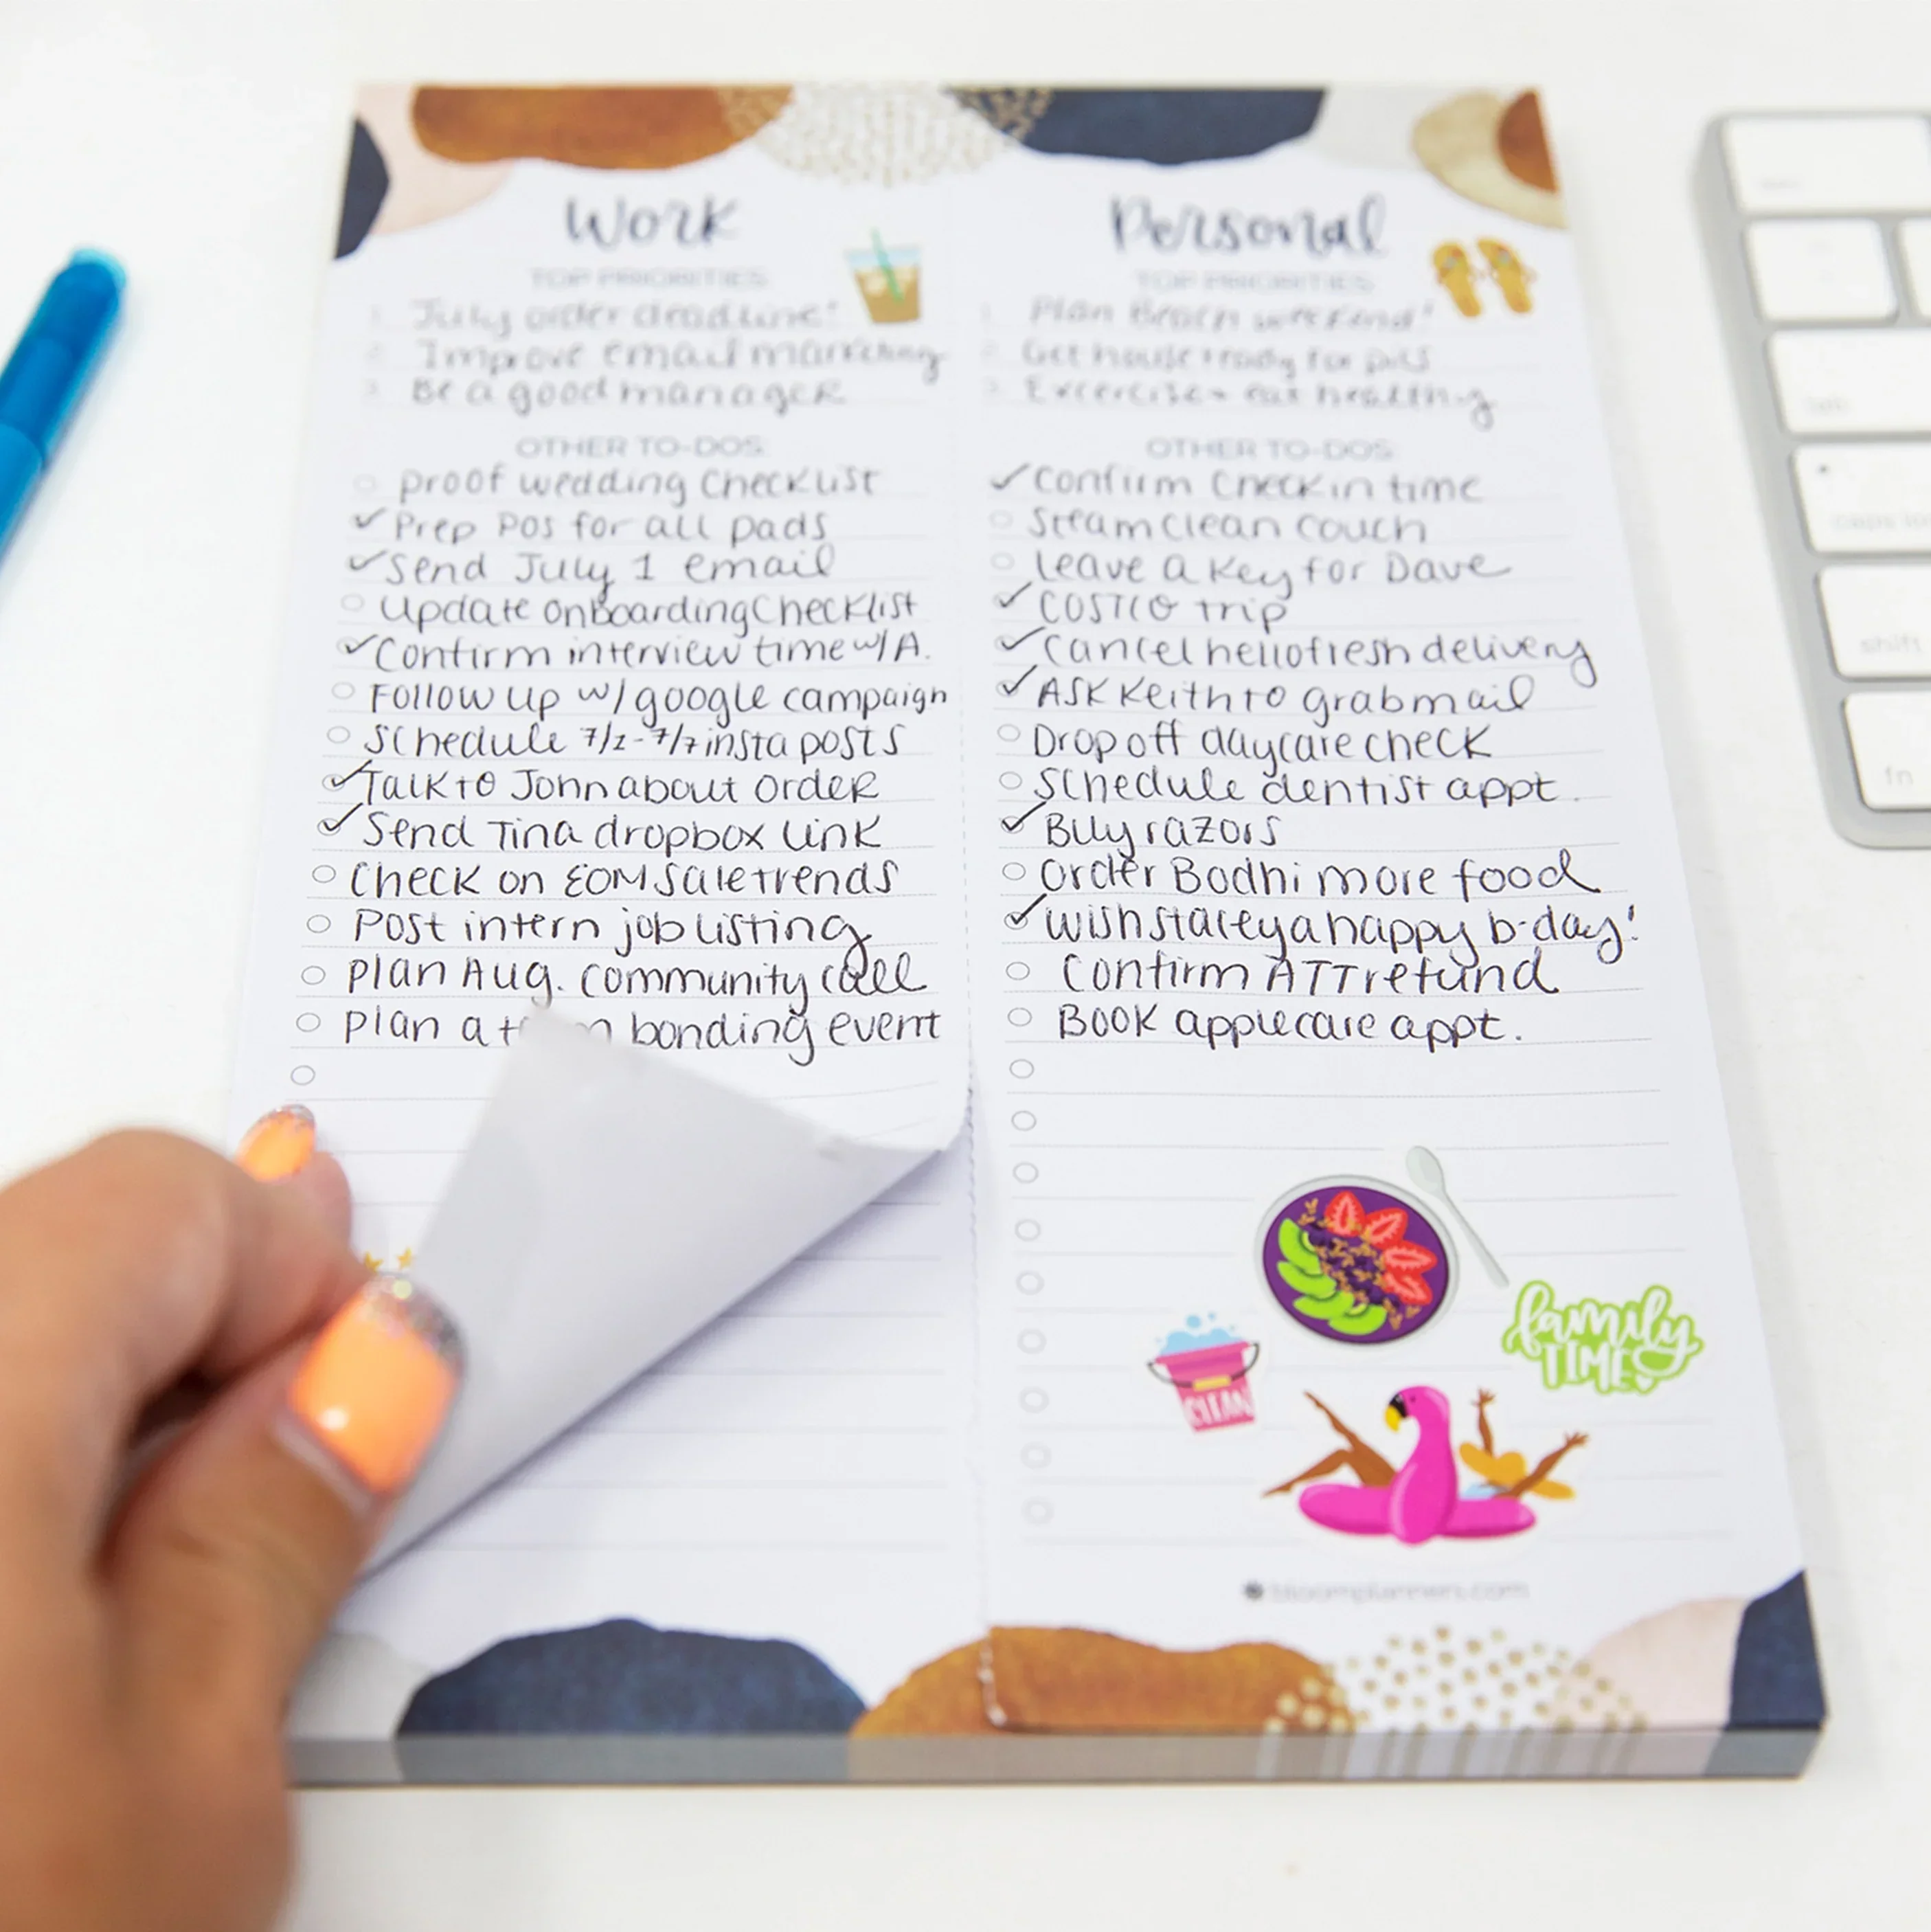 Work
TOP PRIORITIES
1. July order deadline!
2. Improve email marketing
3. Be a good manager
OTHER TO-DOS
Proof wedding Checklist
✓ Prep POs for all pads
✓ Send July 1 email
Update Onboarding Checklist
✓ Confirm interview time w/ A.
Follow up w/ google campaign
Schedule 7/2-7/7 insta posts
✓ Talk to John about order
✓ Send Tina dropbox link
Check on EOM sale trends
Post intern job listing
Plan Aug. community call
Plan a bonding event
Personal
TOP PRIORITIES
1. Plan Beach weekend!
2. Get house ready for
3. Excercise + eat healthy
OTHER TO-DOS
✓ Confirm Check in time
Steam clean couch
Leave a key for Dave
✓ COSTCO trip
✓ Cancel hellofresh delivery
✓ ASK Keith to grab mail
Drop off daycare check
Schedule dentist appt.
✓ Buy razors
Order Bodhi more food
✓ wish stacey a happy b-day!
Confirm ATT refund
Book applecare appt.
CLEAN
family
TIME
bloomplanners.com
tab
caps lo
shift
fn